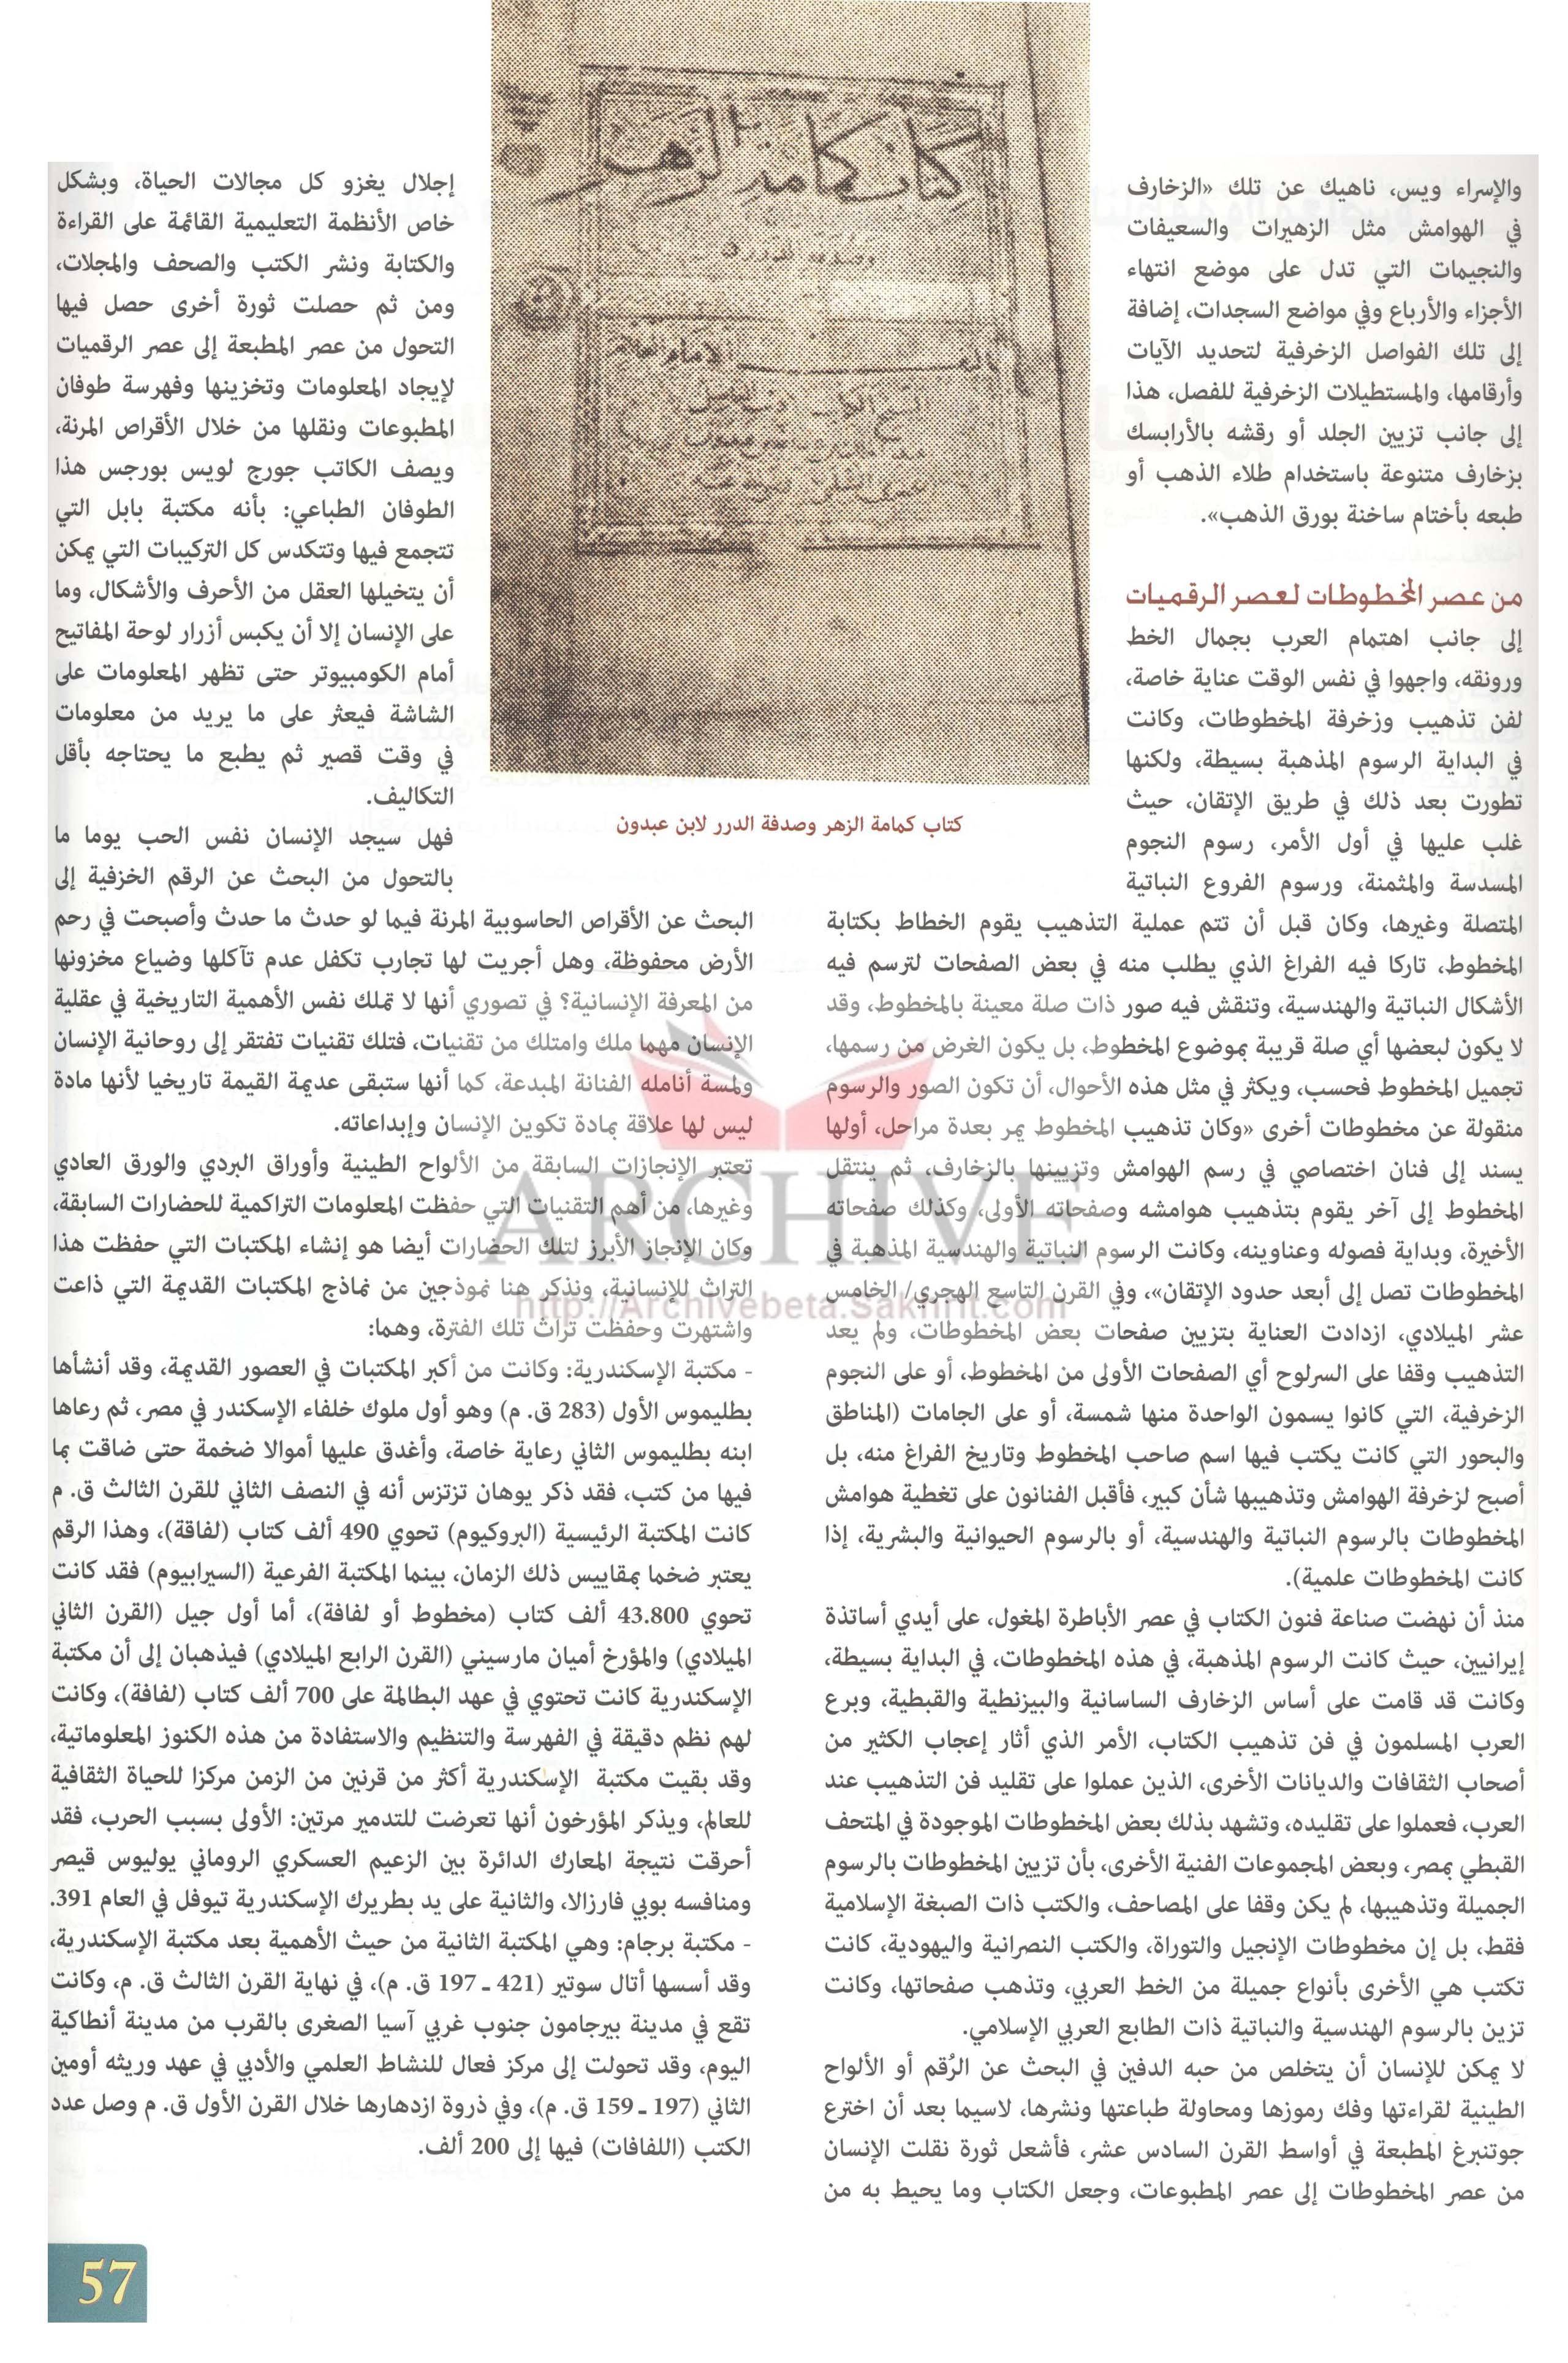 والإسراء ويس، ناهيك عن تلك «الزخارف
في الهوامش مثل الزهيرات والسعيفات
والنجيمات التي تدل على موضع انتهاء
الأجزاء والأرباع وفي مواضع السجدات، إضافة
إلى تلك الفواصل الزخرفية لتحديد الآيات
وأرقامها، والمستطيلات الزخرفية للفصل، هذا
إلى جانب تزيين الجلد أو رقشه بالأرابسك
بزخارف متنوعة باستخدام طلاء الذهب أو
طبعه بأختام ساخنة بورق الذهب».
من عصر المخطوطات لعصر الرقميات
إلى جانب اهتمام العرب بجمال الخط
ورونقه، واجهوا في نفس الوقت عناية خاصة،
لفن تذهيب وزخرفة المخطوطات، وكانت
في البداية الرسوم المذهبة بسيطة، ولكنها
تطورت بعد ذلك في طريق الإتقان، حيث
غلب عليها في أول الأمر، رسوم النجوم
المسدسة والمثمنة، ورسوم الفروع النباتية
المتصلة وغيرها، وكان قبل أن تتم عملية التذهيب يقوم الخطاط بكتابة
المخطوط، تاركا فيه الفراغ الذي يطلب منه في بعض الصفحات لترسم فيه
الأشكال النباتية والهندسية، وتنقش فيه صور ذات صلة معينة بالمخطوط، وقد
لا يكون لبعضها أي صلة قريبة بموضوع المخطوط، بل يكون الغرض من رسمها،
تجميل المخطوط فحسب، ويكثر في مثل هذه الأحوال، أن تكون الصور والرسوم
منقولة عن مخطوطات أخرى «وكان تذهيب المخطوط يمر بعدة مراحل، أولها
يسند إلى فنان اختصاصي في رسم الهوامش وتزيينها بالزخارف، ثم ينتقل
المخطوط إلى آخر يقوم بتذهيب هوامشه وصفحاته الأولى، وكذلك صفحاته
الأخيرة، وبداية فصوله وعناوينه، وكانت الرسوم النباتية والهندسية المذهبة في
المخطوطات تصل إلى أبعد حدود الإتقان»، وفي القرن التاسع الهجري/ الخامس
عشر الميلادي، ازدادت العناية بتزيين صفحات بعض المخطوطات، ولم يعد
التذهيب وقفا على السرلوح أي الصفحات الأولى من المخطوط، أو على النجوم
الزخرفية، التي كانوا يسمون الواحدة منها شمسة، أو على الجامات (المناطق
والبحور التي كانت يكتب فيها اسم صاحب المخطوط وتاريخ الفراغ منه، بل
أصبح لزخرفة الهوامش وتذهيبها شأن كبير، فأقبل الفنانون على تغطية هوامش
المخطوطات بالرسوم النباتية والهندسية، أو بالرسوم الحيوانية والبشرية، إذا
كانت المخطوطات علمية).
منذ أن نهضت صناعة فنون الكتاب في عصر الأباطرة المغول، على أيدي أساتذة
إيرانيين، حيث كانت الرسوم المذهبة، في هذه المخطوطات، في البداية بسيطة،
وكانت قد قامت على أساس الزخارف الساسانية والبيزنطية والقبطية، وبرع
العرب المسلمون في فن تذهيب الكتاب، الأمر الذي أثار إعجاب الكثير من
أصحاب الثقافات والديانات الأخرى، الذين عملوا على تقليد فن التذهيب عند
العرب، فعملوا على تقليده، وتشهد بذلك بعض المخطوطات الموجودة في المتحف
القبطي بمصر، وبعض المجموعات الفنية الأخرى، بأن تزيين المخطوطات بالرسوم
الجميلة وتذهيبها، لم يكن وقفا على المصاحف، والكتب ذات الصبغة الإسلامية
فقط، بل إن مخطوطات الإنجيل والتوراة، والكتب النصرانية واليهودية، كانت
تكتب هي الأخرى بأنواع جميلة من الخط العربي، وتذهب صفحاتها، وكانت
تزين بالرسوم الهندسية والنباتية ذات الطابع العربي الإسلامي.
لا يمكن للإنسان أن يتخلص من حبه الدفين في البحث عن الرُقم أو الألواح
الطينية لقراءتها وفك رموزها ومحاولة طباعتها ونشرها، لاسيما بعد أن اخترع
جوتنبرغ المطبعة في أواسط القرن السادس عشر، فأشعل ثورة نقلت الإنسان
من عصر المخطوطات إلى عصر المطبوعات، وجعل الكتاب وما يحيط به من
كتاب كمامة الزهر
كتاب كمامة الزهر وصدفة الدرر لابن عبدون
إجلال يغزو كل مجالات الحياة، وبشكل
خاص الأنظمة التعليمية القائمة على القراءة
والكتابة ونشر الكتب والصحف والمجلات،
ومن ثم حصلت ثورة أخرى حصل فيها
التحول من عصر المطبعة إلى عصر الرقميات
لإيجاد المعلومات وتخزينها وفهرسة طوفان
المطبوعات ونقلها من خلال الأقراص المرنة،
ويصف الكاتب جورج لويس بورجس هذا
الطوفان الطباعي: بأنه مكتبة بابل التي
تتجمع فيها وتتكدس كل التركيبات التي يمكن
أن يتخيلها العقل من الأحرف والأشكال، وما
على الإنسان إلا أن يكبس أزرار لوحة المفاتيح
أمام الكومبيوتر حتى تظهر المعلومات على
الشاشة فيعثر على ما يريد من معلومات
في وقت قصير ثم يطبع ما يحتاجه بأقل
التكاليف.
فهل سيجد الإنسان نفس الحب يوما ما
بالتحول من البحث عن الرقم الخزفية إلى
البحث عن الأقراص الحاسوبية المرنة فيما لو حدث ما حدث وأصبحت في رحم
الأرض محفوظة، وهل أجريت لها تجارب تكفل عدم تآكلها وضياع مخزونها
من المعرفة الإنسانية؟ في تصوري أنها لا تملك نفس الأهمية التاريخية في عقلية
الإنسان مهما ملك وامتلك من تقنيات، فتلك تقنيات تفتقر إلى روحانية الإنسان
ولمسة أنامله الفنانة المبدعة، كما أنها ستبقى عديمة القيمة تاريخيا لأنها مادة
ليس لها علاقة بمادة تكوين الإنسان وإبداعاته.
تعتبر الإنجازات السابقة من الألواح الطينية وأوراق البردي والورق العادي
وغيرها، من أهم التقنيات التي حفظت المعلومات التراكمية للحضارات السابقة،
وكان الإنجاز الأبرز لتلك الحضارات أيضا هو إنشاء المكتبات التي حفظت هذا
التراث للإنسانية، ونذكر هنا نموذجين من نماذج المكتبات القديمة التي ذاعت
واشتهرت وحفظت تراث تلك الفترة، وهما:
- مكتبة الإسكندرية: وكانت من أكبر المكتبات في العصور القديمة، وقد أنشأها
بطليموس الأول (283 ق. م) وهو أول ملوك خلفاء الإسكندر في مصر، ثم رعاها
ابنه بطليموس الثاني رعاية خاصة، وأغدق عليها أموالا ضخمة حتى ضاقت بما
فيها من كتب، فقد ذكر يوهان تزتزس أنه في النصف الثاني للقرن الثالث ق. م
كانت المكتبة الرئيسية (البروكيوم) تحوي 490 ألف كتاب (لفاقة)، وهذا الرقم
يعتبر ضخما بمقاييس ذلك الزمان، بينما المكتبة الفرعية (السيرابيوم) فقد كانت
تحوي 43.800 ألف كتاب (مخطوط أو لفافة)، أما أول جيل (القرن الثاني
الميلادي) والمؤرخ أميان مارسيني (القرن الرابع الميلادي) فيذهبان إلى أن مكتبة
الإسكندرية كانت تحتوي في عهد البطالمة على 700 ألف كتاب (لفافة)، وكانت
لهم نظم دقيقة في الفهرسة والتنظيم والاستفادة من هذه الكنوز المعلوماتية،
وقد بقيت مكتبة الإسكندرية أكثر من قرنين من الزمن مركزا للحياة الثقافية
للعالم، ويذكر المؤرخون أنها تعرضت للتدمير مرتين: الأولى بسبب الحرب، فقد
أحرقت نتيجة المعارك الدائرة بين الزعيم العسكري الروماني يوليوس قيصر
ومنافسه بوبي فارزالا، والثانية على يد بطريرك الإسكندرية تيوفل في العام 391.
- مكتبة برجام: وهي المكتبة الثانية من حيث الأهمية بعد مكتبة الإسكندرية،
وقد أسسها أتال سوتير (421 ـ 197 ق. م)، في نهاية القرن الثالث ق. م، وكانت
تقع في مدينة بيرجامون جنوب غربي آسيا الصغرى بالقرب من مدينة أنطاكية
اليوم، وقد تحولت إلى مركز فعال للنشاط العلمي والأدبي في عهد وريثه أومين
الثاني (197 ـ 159 ق. م)، وفي ذروة ازدهارها خلال القرن الأول ق. م وصل عدد
الكتب (اللفافات) فيها إلى 200 ألف.
ARCHIVE
http://Archivebeta.Sakhrit.com
57